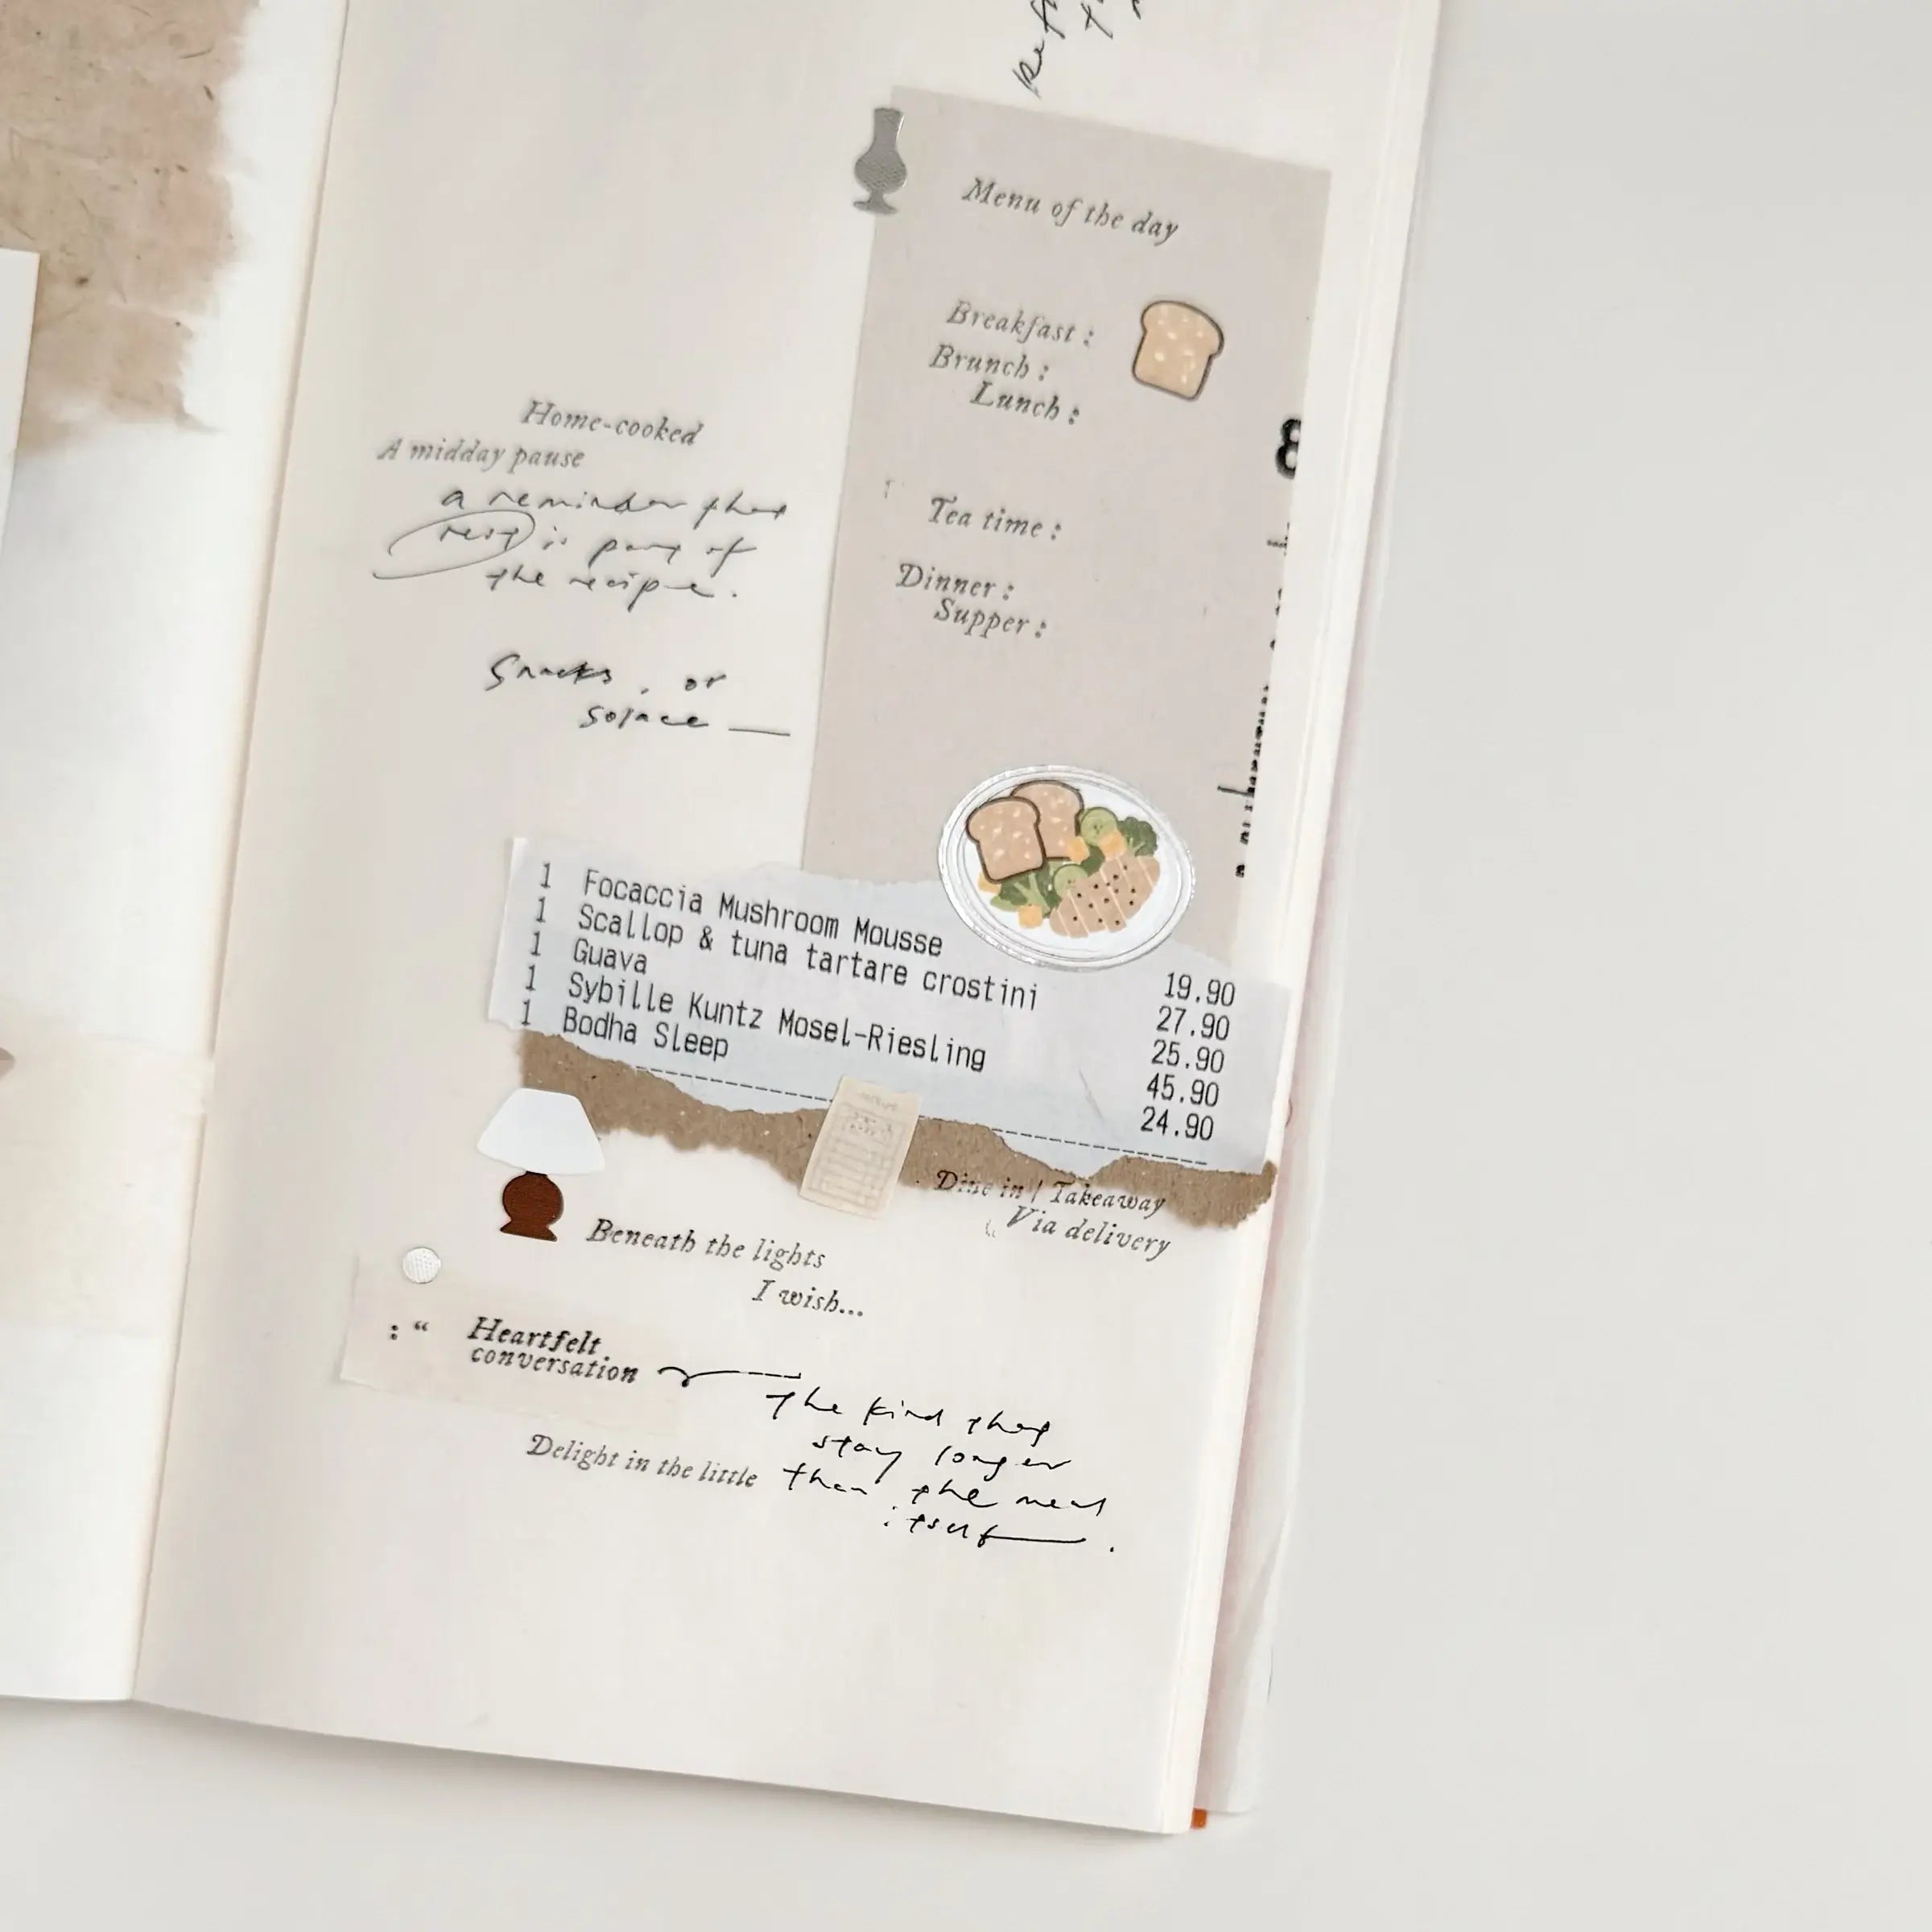 Menu of the day
Breakfast :
Brunch :
Lunch :
8
Tea time :
Dinner :
Supper :
Home-cooked
A midday pause
a reminder that
rest is part of
the recipe.
Snacks, or
solace —
1 Focaccia Mushroom Mousse 19.90
1 Scallop & tuna tartare crostini 27.90
1 Guava 25.90
1 Sybille Kuntz Mosel-Riesling 45.90
1 Bodha Sleep 24.90
Dine in | Takeaway
Via delivery
Beneath the lights
I wish...
: “ Heartfelt
conversation
the kind that
stay longer
than the meal
itself.
Delight in the little